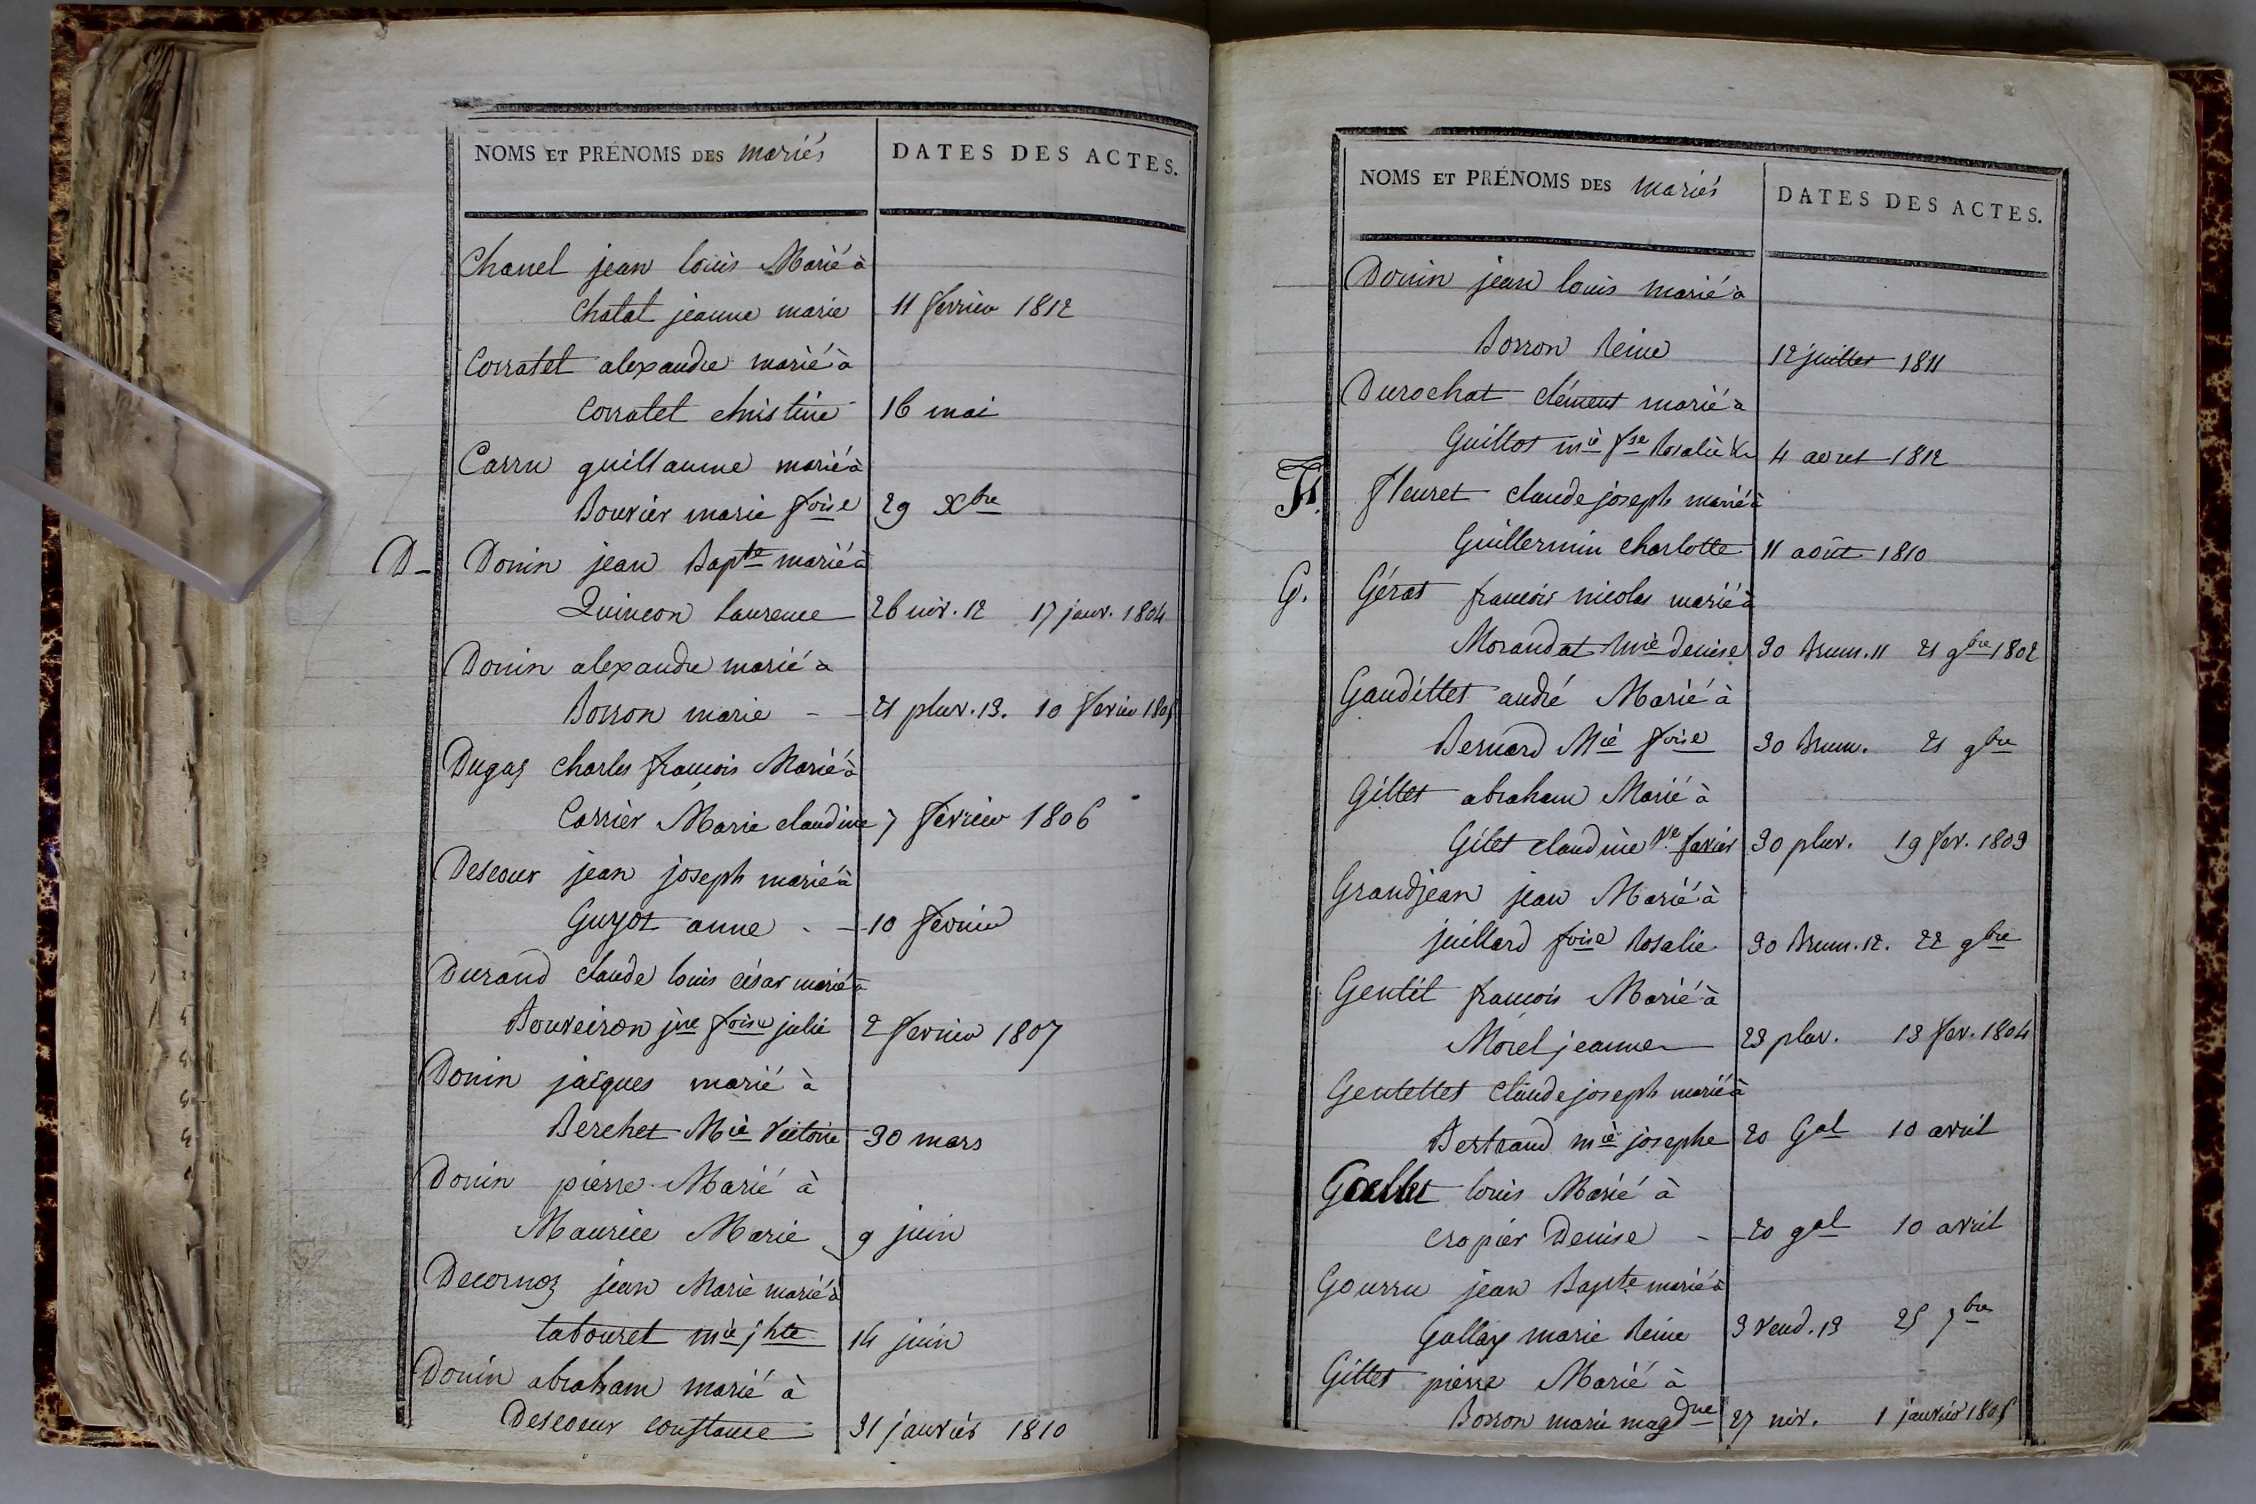 NOMS ET PRÉNOMS DES mariés DATES DES ACTES.
Chanel jean louis Marié à
Chatal jeanne marie 11 fevrier 1812
Corratet alexandre marié à
Corratet christine 16 mai
Carru guillaume marié à
Bouvier marie foise 29 Xbre
D - Donin jean Bapte marié à
Quincon laurence 26 niv. 12 17 janv. 1804
Donin alexandre marié a
Borron marie - - 21 pluv. 13. 10 fevrier 1805
Dugas charles francois Marié à
Carrier Marie claudine 7 fevrier 1806
Descour jean joseph marié à
Guyot anne - - 10 fevrier
Durand claude louis césar marié à
Bouveiron jne foise julie 2 fevrier 1807
Donin jacques marié à
Berchet Mie victoire 30 mars
Donin pierre Marié à
Maurice Marie 9 juin
Decornoz jean Marie marié à
tabouret mie jhte 14 juin
Donin abraham marié à
Descoeur constance 31 janvier 1810
NOMS ET PRÉNOMS DES mariés DATES DES ACTES.
Donin jean louis marié à
Borron Reine 12 juillet 1811
Durochat clément marié a
Guillot mie fse Rosalie 4 aout 1812
F. fleuret claude joseph marié à
Guillermin charlotte 11 août 1810
G. Gérat francois nicolas marié à
Morandat mie denise 30 brum. 11 21 9bre 1802
Gaudillet andré Marié à
Bernard Mie foise 30 brum. 21 9bre
Gillet abraham Marié à
Gilet claudine ve favier 30 pluv. 19 fev. 1803
Grandjean jean Marié à
juillard foise Rosalie 30 brum. 12. 22 9bre
Gentil francois Marié à
Morel jeanne 23 pluv. 13 fev. 1804
Gentellet claude joseph marié à
Bertrand mie josephe 20 Gal 10 avril
Gallet louis Marié à
cropier Denise - - 20 gal 10 avril
Gourru jean Bapte marié à
Gallay marie Reine 3 vend. 13 25 7bre
Gillet pierre Marié à
Borron marie magdne 27 niv. 1 janvier 1805